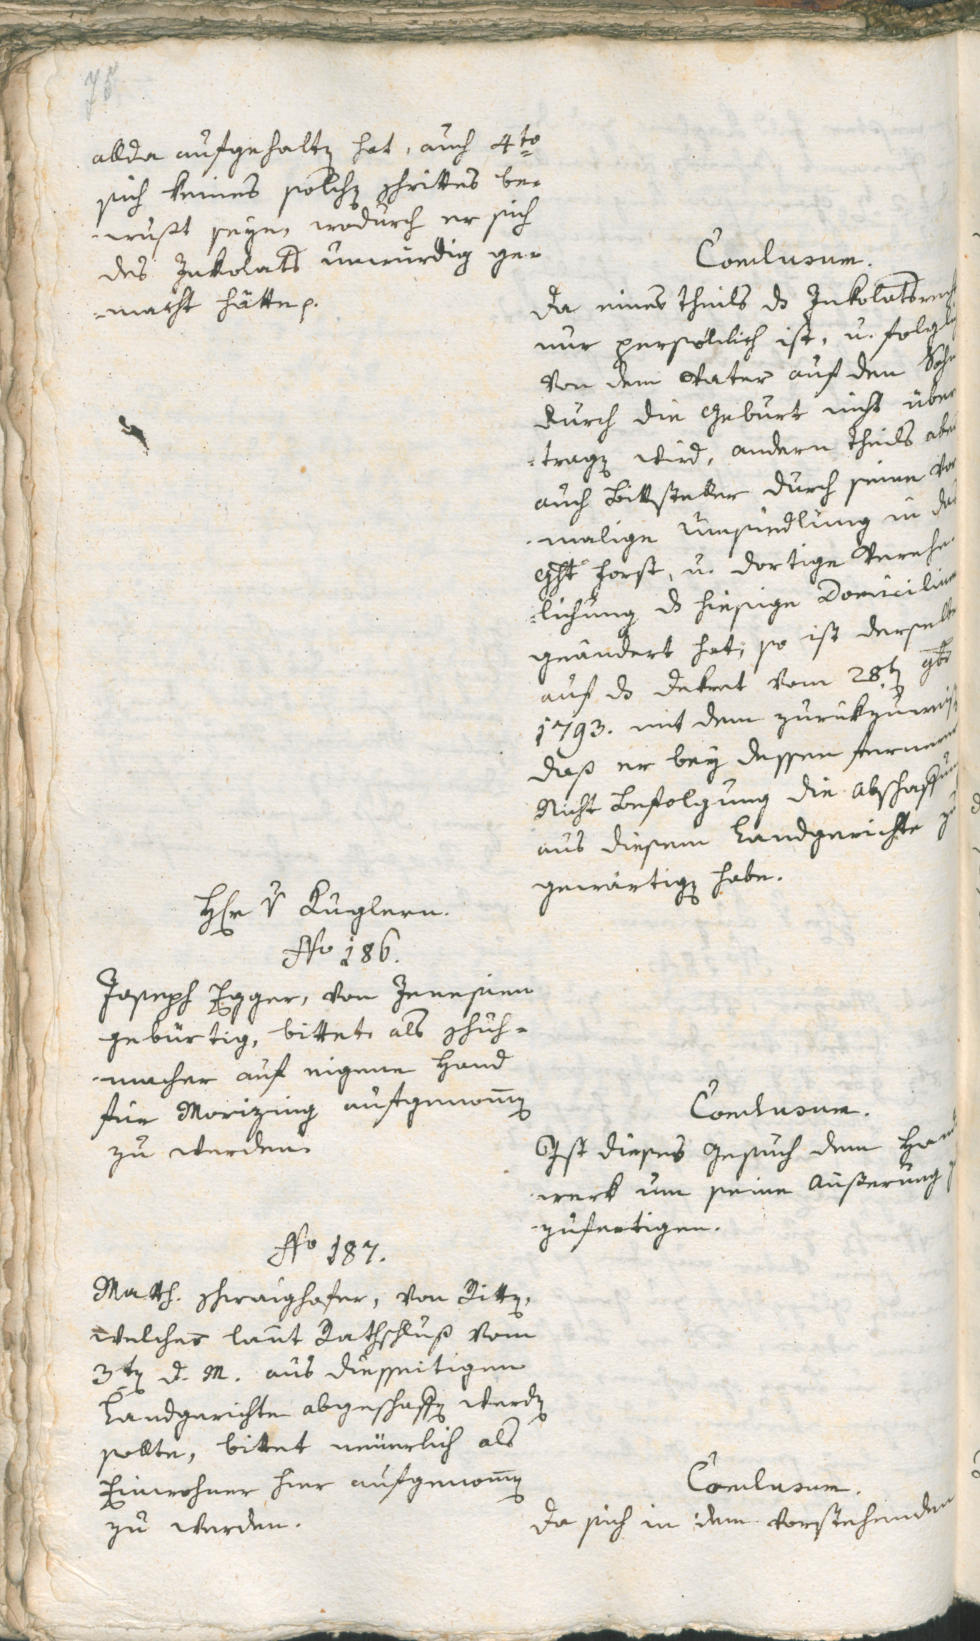 75
allda aufgehaltꝫ hat, auch 4to
sich keines solchꝫ Schrittes be-
-wußt seye, wodurch er sich
des Inkolats unwürdig ge-
-macht hätte p.
Conclusum.
Da eines Theils ds Inkolatsrecht
nur persönlich ist, u. folgl
von dem Vater auf den Soh
durch die Geburt nicht über
-tragꝫ wird, andern Theils aber
auch Bittsteller durch seine vor
-malige Ansiedlung in das
Ght Forst, u. dortige Verehe-
-lichung ds hiesige Domicilium
geändert hat; so ist derselbe
auf ds Dekret vom 28tꝫ 9br
1793. mit dem zurükzuweis
daß er bey dessen fernerer
Nicht Befolgung die Abschaffung
aus diesem Landgerichte zu
gewärtigꝫ habe.
Hr v Kuglern.
No 186.
Joseph Egger, von Jenesien
gebürtig, bittet als Schuh-
-macher auf eigene Hand
für Morizing aufgenomꝫ
zu werden.
Conclusum.
Ist dieses Gesuch dem Hand
werk um seine Äußerung
-zufertigen.
No 187.
Math. Schwaighofer, von Rittꝫ,
welcher laut Rathschluß vom
3tꝫ d. M. aus diesseitigen
Landgerichte abgeschaffꝫ werdꝫ
sollte, bittet neüerlich als
Einwohner hier aufgenomꝫ
zu werden.
Conclusum.
Da sich in dem vorstehenden